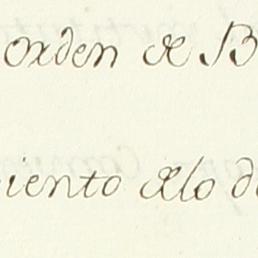 orden de B
iento delo de